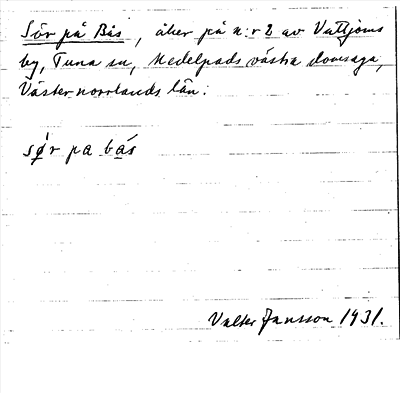 Sör på Bås, åker på n:r 2 av Vattjoms
by, Tuna sn, Medelpads västra domsaga,
Västernorrlands län.
sǿr pa bás
Valter Jansson 1931.